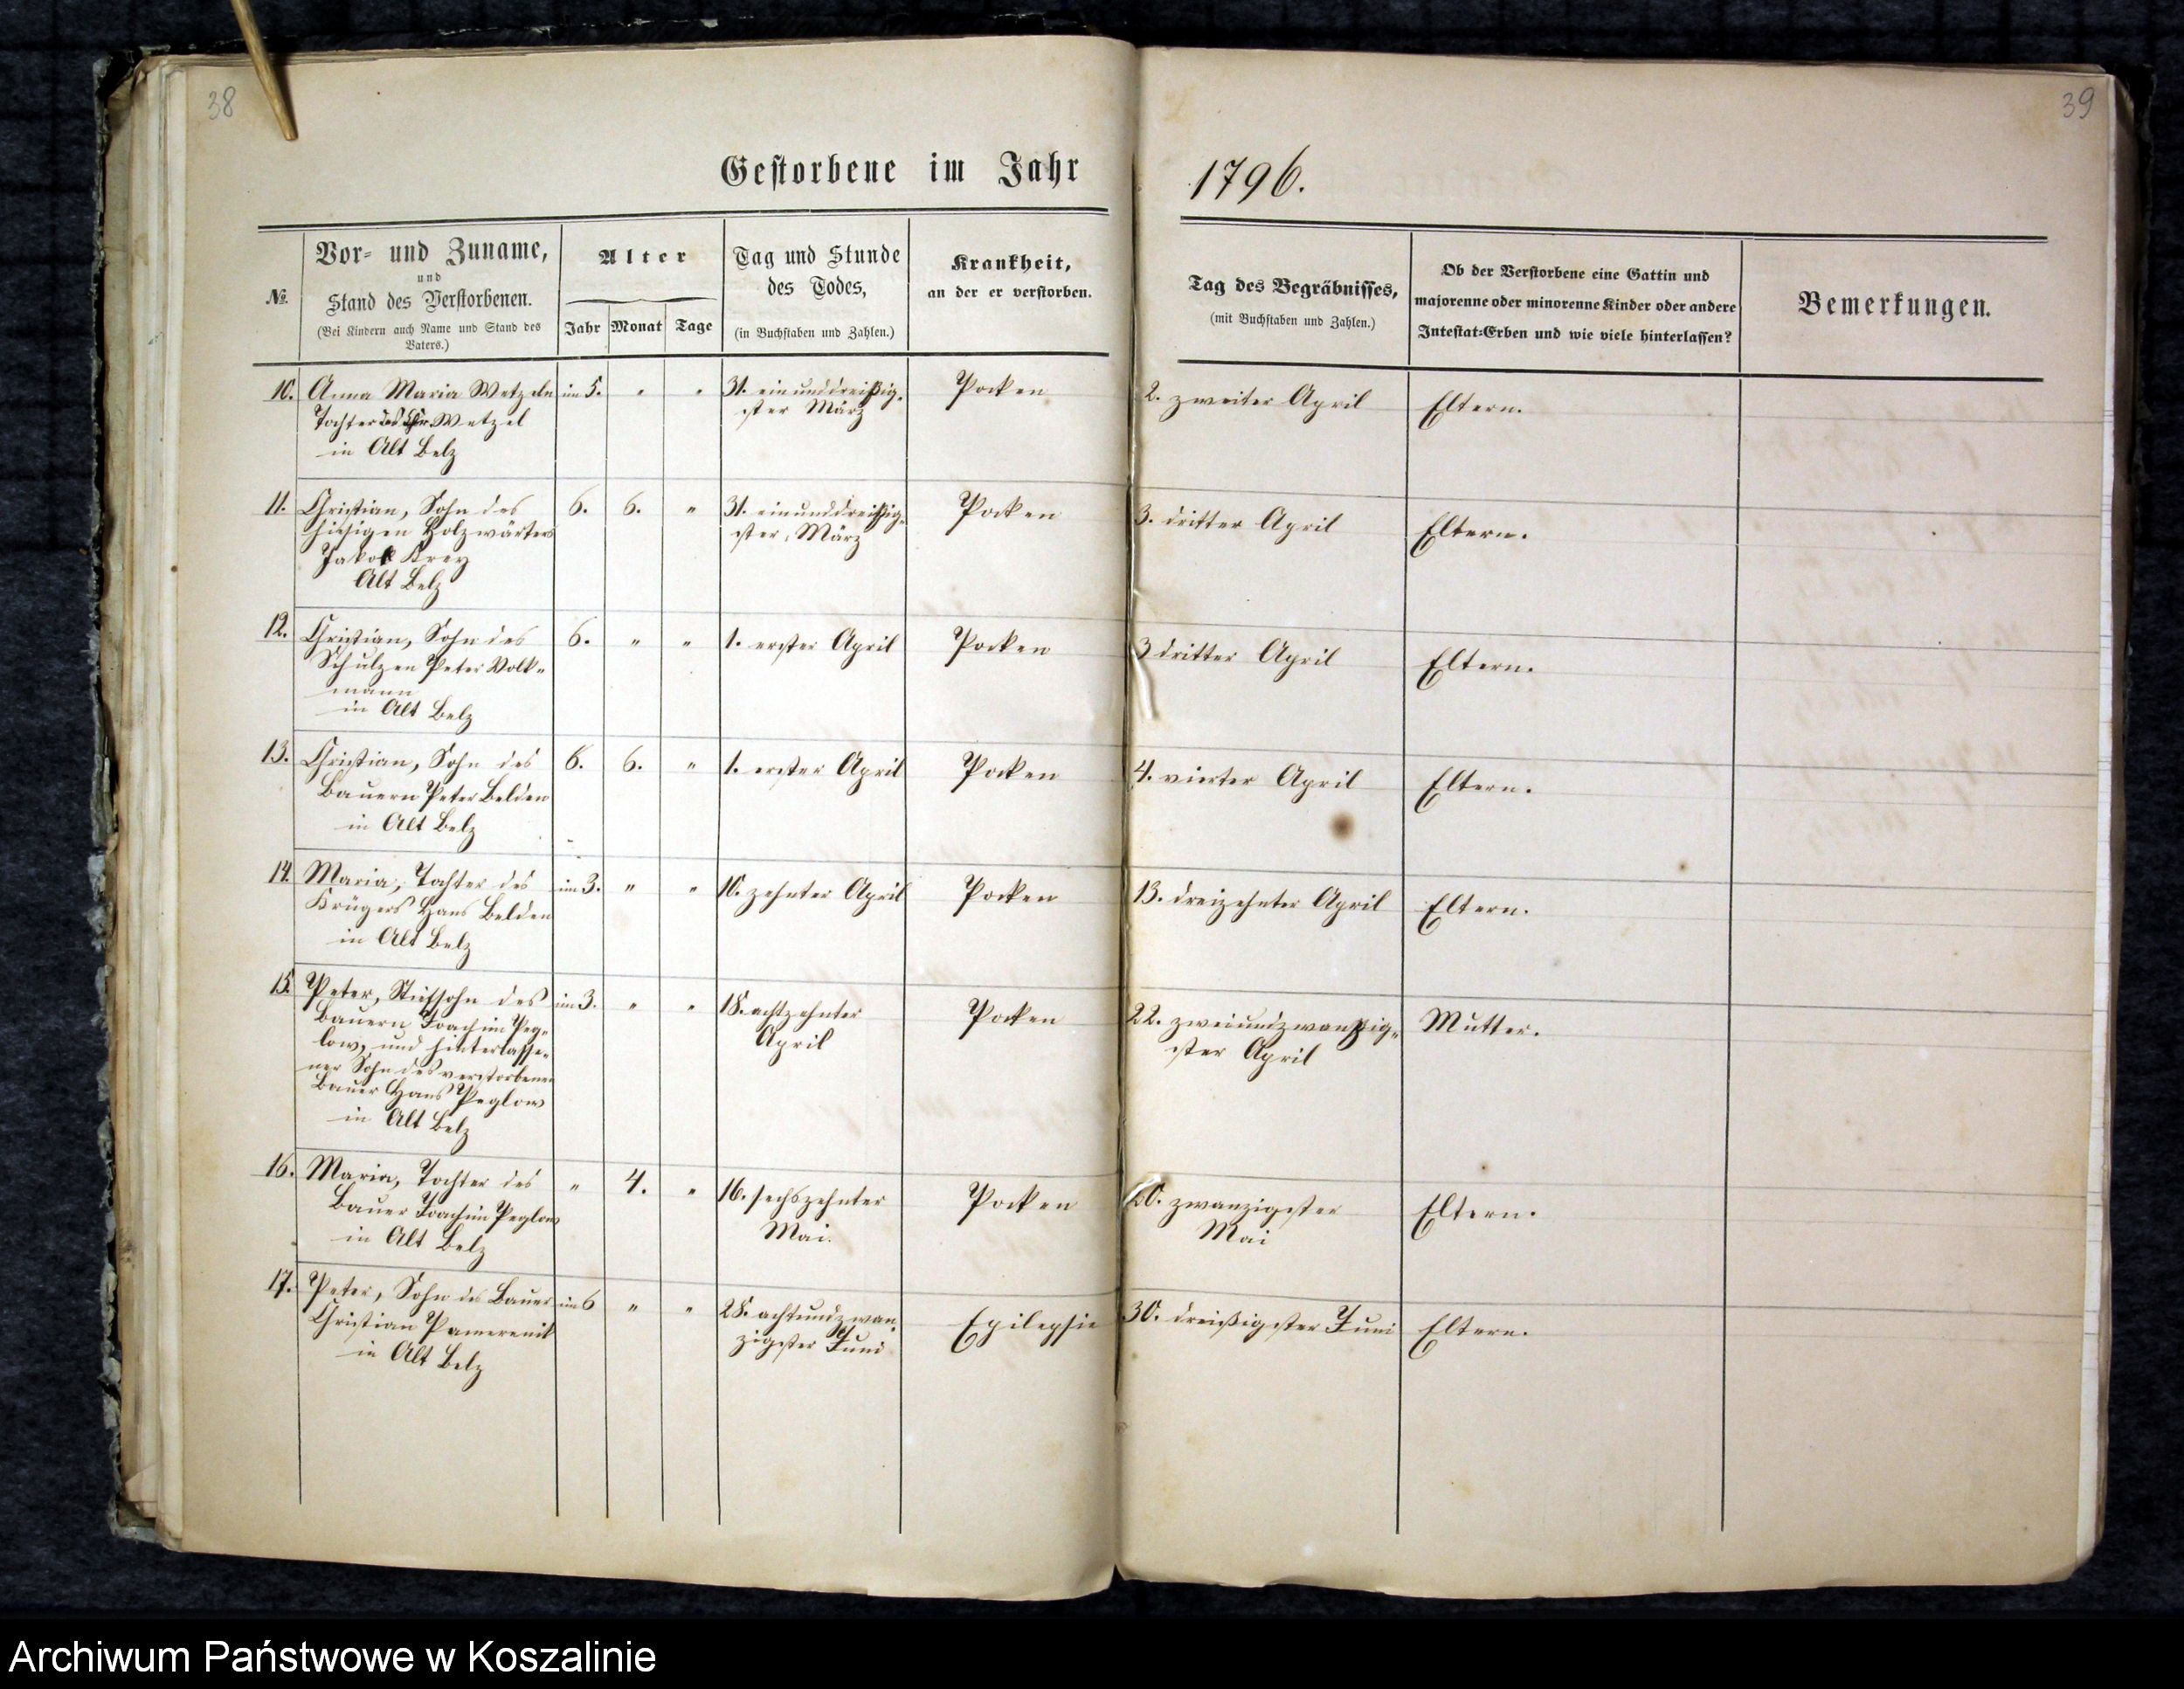 38
39
Gestorbene im Jahr
1796.
№.
Vor- und Zuname,
und
Stand des Verstorbenen.
(Bei Kindern auch Name und Stand des
Vaters.)
Alter
Jahr Monat Tage
Tag und Stunde
des Todes,
(in Buchstaben und Zahlen.)
Krankheit,
an der er verstorben.
Tag des Begräbnisses,
(mit Buchstaben und Zahlen.)
Ob der Verstorbene eine Gattin und
majorenne oder minorenne Kinder oder andere
Intestat-Erben und wie viele hinterlassen?
Bemerkungen.
10. Anna Maria Wetzeln im 5. " " 31. einunddreißig- Pocken 2. zweiter April Eltern.
Tochter des Chr. Wetzel ster März
in Alt Belz
11. Christian, Sohn des 6. 6. " 31. einunddreißig- Pocken 3. dritter April Eltern.
hiesigen Holzwärters ster, März
Jakob Krey
Alt Belz
12. Christian, Sohn des 6. " " 1. erster April Pocken 3 dritter April Eltern.
Schulzen Peter Volk-
mann
in Alt Belz
13. Christian, Sohn des 6. 6. " 1. erster April Pocken 4. vierter April Eltern.
Bauern Peter Belden
in Alt Belz
14. Maria, Tochter des im 3. " " 10. zehnter April Pocken 13. dreizehnter April Eltern.
Krügers Hans Belden
in Alt Belz
15. Peter, Stiefsohn des im 3. " " 18. achtzehnter Pocken 22. zweiundzwanzig- Mutter.
Bauern Joachim Peg- April ster April
low, und hinterlasse-
ner Sohn des verstorbenen
Bauer Hans Peglow
in Alt Belz
16. Maria, Tochter des " 4. " 16. sechszehnter Pocken 20. zwanzigster Eltern.
Bauer Joachim Peglow Mai. Mai
in Alt Belz
17. Peter, Sohn des Bauer im 6 " " 28. achtundzwan- Epilepsie 30. dreißigster Juni Eltern.
Christian Pamerenik zigster Juni
in Alt Belz
Archiwum Państwowe w Koszalinie